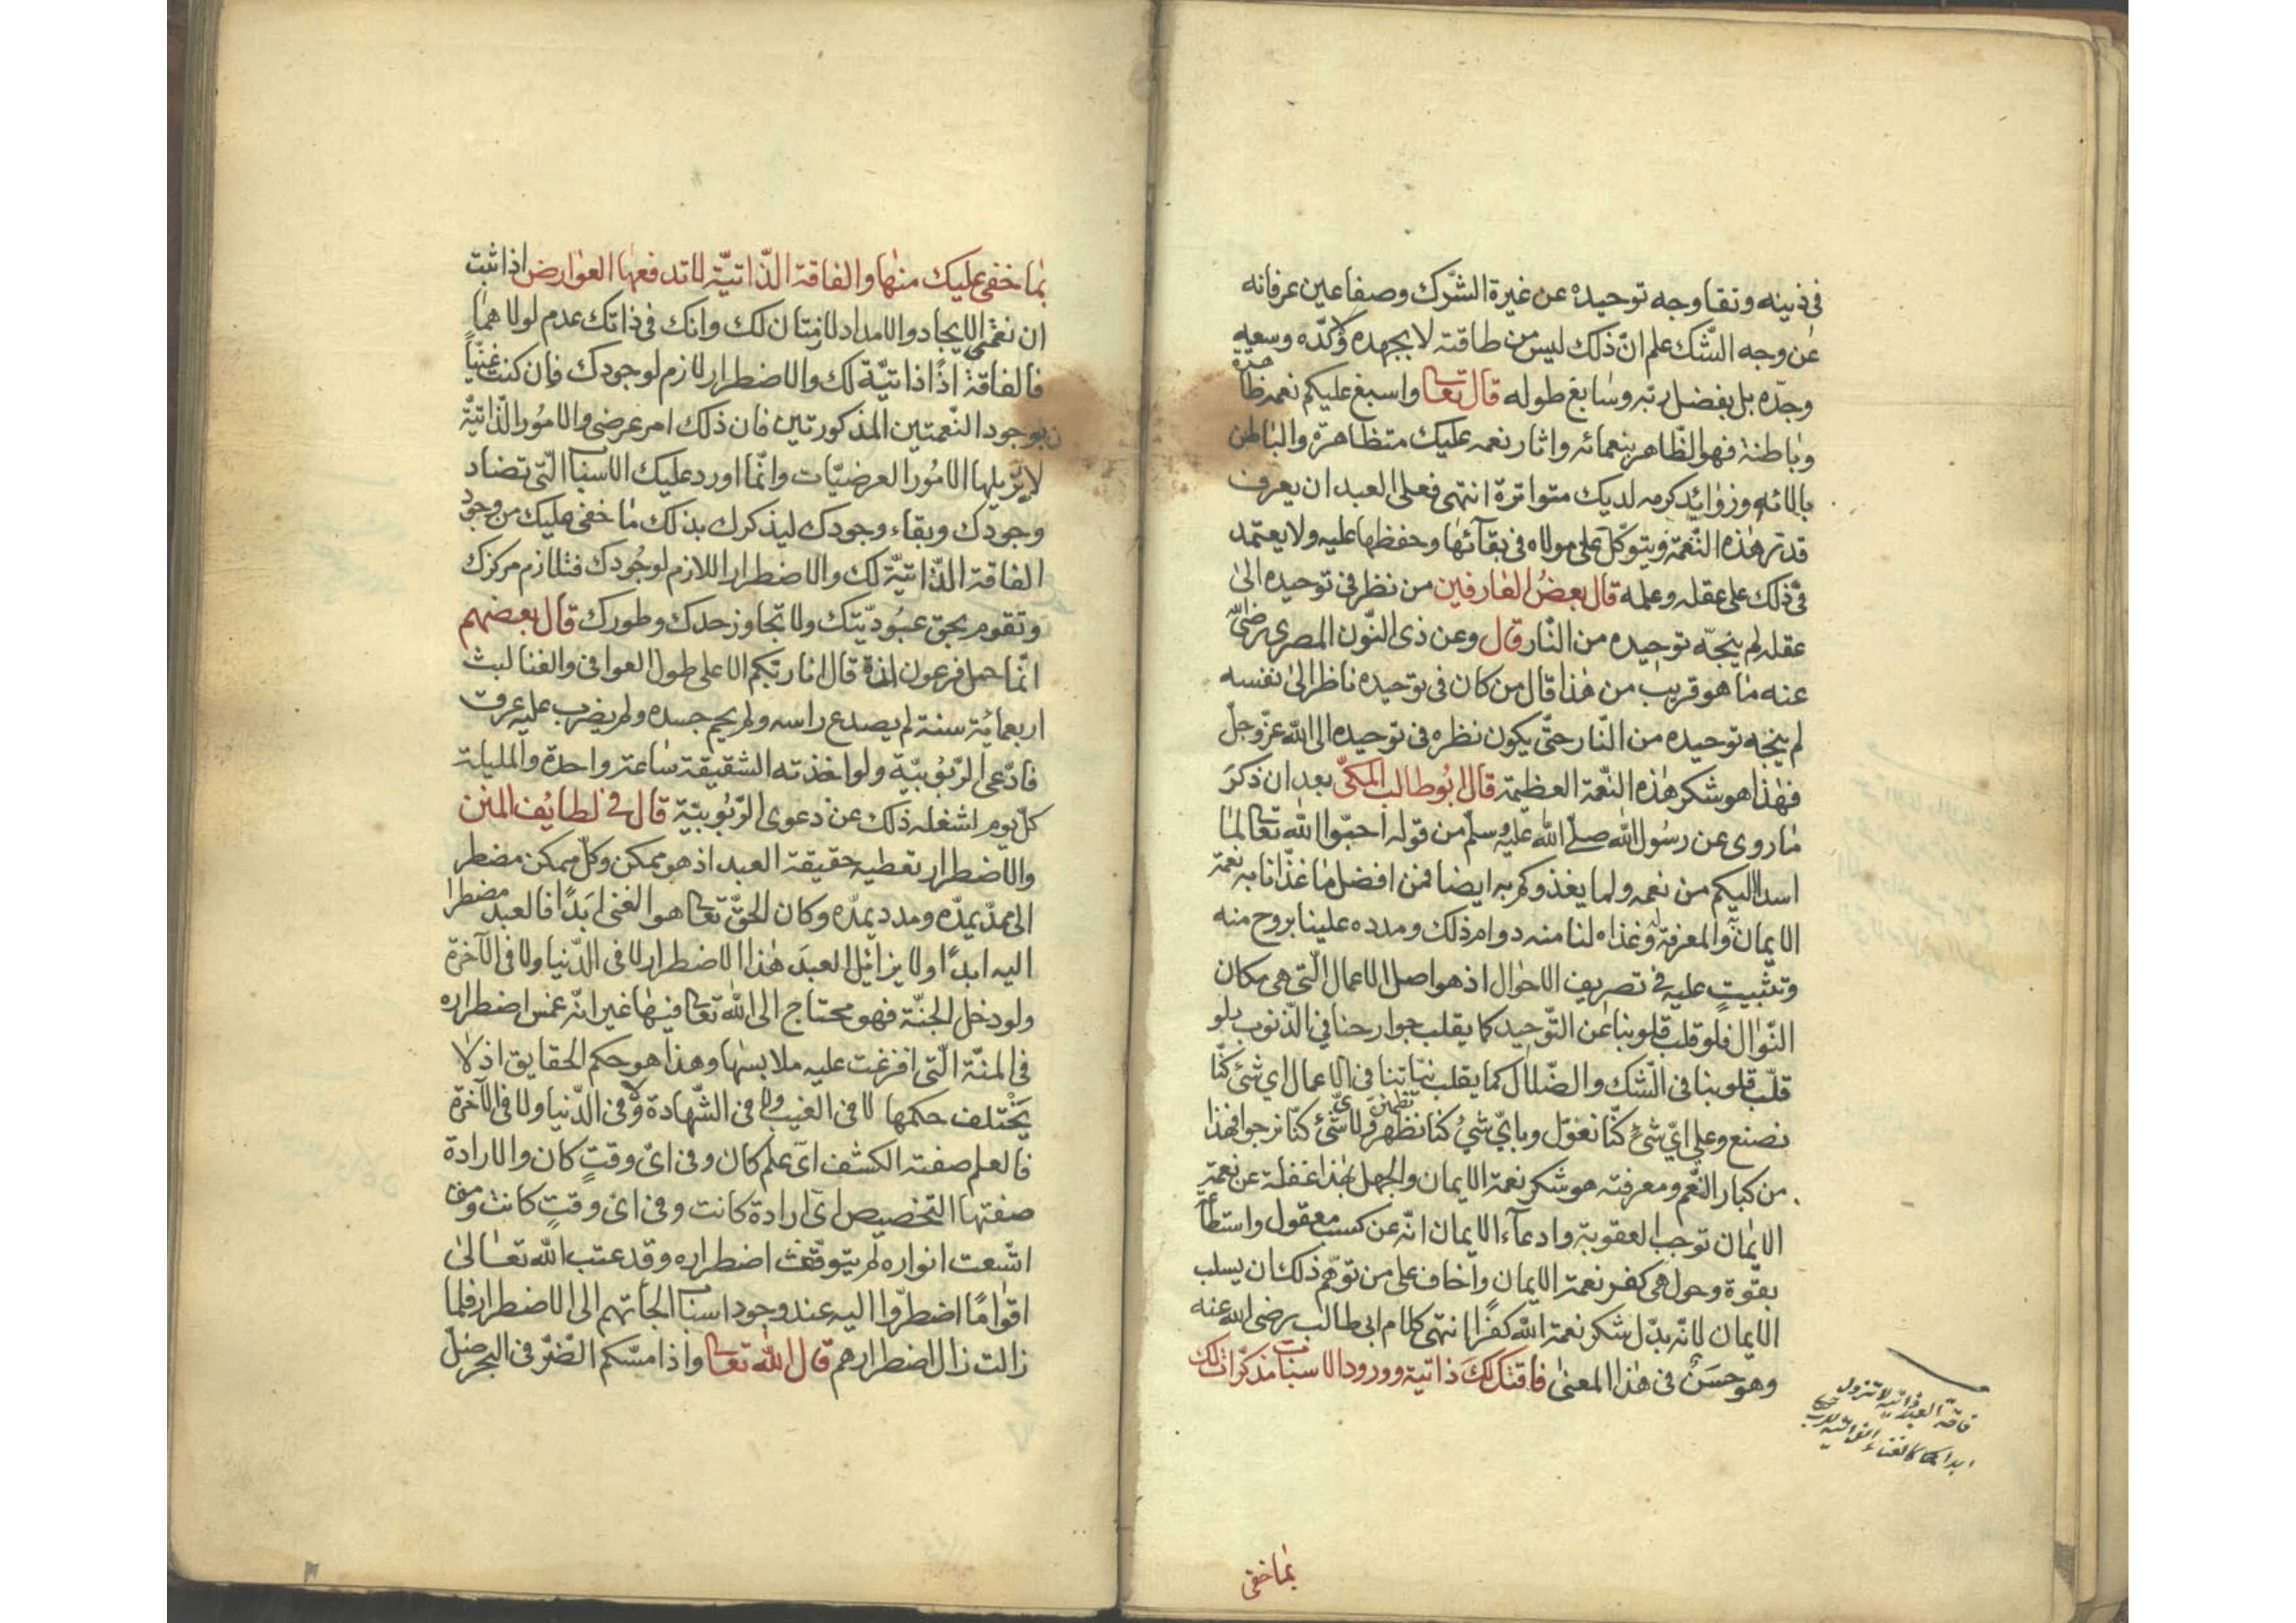 في ذينه ونقا وجه توحيده عن غيرة الشّرك وصفا عين عرفانه
عن وجه الشّك علم انّ ذلك ليس من طاقته لا بجهده وكدّه وسعيه
وجدّه بل بفضل ربّه وسابغ طوله قال تعا واسبغ عليكم نعمه ظاهرة
وباطنة فهو الظّاهر بنعمائه واثار نعمه عليك متظاهرة والباطن
بالائه وزوايد كرمه لديك متواترة انتهى فعلى العبد ان يعرف
قدر هذه النّعمة ويتوكّل على مولاه في بقائها وحفظها عليه ولا يعتمد
في ذلك على عقله وعلمه قال بعض العارفين من نظر في توحيده الى
عقله لم ينجّه توحيده من النّار قال وعن ذي النّون المصري رضي
عنه ما هو قريب من هذا قال من كان في توحيده ناظرا الى نفسه
لم ينجه توحيده من النّار حتّى يكون نظره في توحيده الى الله عزّ وجلّ
فهذا هو شكر هذه النّعمة العظيمة قال ابو طالب المكيّ بعد ان ذكر
ما روى عن رسول الله صلى الله عليه وسلم من قوله احبّوا الله تعا لما
اسدا اليكم من نعمه ولما يغذوكم به ايضا فمن افضل ما غذانا به نعمة
الايمان والمعرفة وغذاه لنا منه دوام ذلك ومدده علينا بروح منه
وتثبيت عليه في تصريف الاحوال اذ هو اصل الاعمال الّتي هي مكان
النّوال فلو قلب قلوبنا عن التّوحيد كما يقلب جوارحنا في الذّنوب ولو
قلّب قلوبنا في الشّك والضّلال كما يقلب نيّاتنا في الاعمال اي شئ كنّا
نصنع وعلى ايّ شئ كنّا نعوّل وباي شئ كنا نطمئن ولاي شئ كنّا نرجوا فهذا
من كبار النّعم ومعرفته هو شكر نعمة الايمان والجهل بهذا غفلة عن نعمة
الايمان توجب العقوبة وادعاء الايمان انّه عن كسب معقول واستطاعة
بقوّة وحول هى كفر نعمة الايمان واخاف على من توهّم ذلك ان يسلب
الايمان لانّه بدّل شكر نعمة الله كفرا انتهى كلام ابي طالب رضى الله عنه
وهو حسن في هذا المعنى فاقتك لك ذاتية وورود الاسباب مذكّرات لك
فاقة العبد ذاتية لا تزول
ابدا كما كالغناء الذاتية للرب
بما خفى
بما خفى عليك منها والفاقة الذّاتيّة لا تدفعها العوارض اذا ثبت
ان نعمتي الايجاد والامداد لازمتان لك وانك في ذاتك عدم لولا هما
فالفاقة اذًا ذاتيّة لك والاضطرار لازم لوجودك فان كنت غنيّاً
بوجود النّعمتين المذكورتين فان ذلك امر عرضي والامور الذّاتيّة
لا يزيلها الامور العرضيّات وانّما اورد عليك الاسباب الّتي تضاد
وجودك وبقاء وجودك ليذكرك بذلك ما خفى عليك من وجود
الفاقة الذّاتيّة لك والاضطرار اللازم لوجودك فتلازم مركزك
وتقوم بحق عبوديّتك ولا تجاوز حدك وطورك قال بعضهم
انّما حمل فرعون انه قال انا ربّكم الا على طول العوافي والغنا لبث
اربعمائة سنة لم يصدع راسه ولم يحم جسده ولم يضرب عليه عرق
فادّعى الرّبوبيّة ولو اخذته الشقيقة ساعة واحدة والمليلة
كلّ يوم اشغله ذلك عن دعوى الرّبوبيّة قال في لطايف المنن
والاضطرار تعطيه حقيقة العبد اذ هو ممكن وكلّ ممكن مضطر
الى ممدّ يمدّه ومدد يمدّه وكان الحقّ تعا هو الغنى ابدًا فالعبد مضطرا
اليه ابدًا ولا يزائل العبد هذا الاضطرار لا في الدّنيا ولا في الآخرة
ولو دخل الجنّة فهو محتاج الى الله تعا فيها غير انّه غمس اضطراره
في المنّة الّتي افرغت عليه ملابسها وهذا هو حكم الحقايق اذ لا
يختلف حكمها لا في الغيب ولا في الشّهادة ولا في الدّنيا ولا في الآخرة
فالعلم صفته الكشف اىّ علم كان وفي اىّ وقت كان والارادة
صفتها التّخصيص اىّ ارادة كانت وفي اىّ وقت كانت ومن
اتّسعت انواره لم يتوقّف اضطراره وقد عتب الله تعالى
اقوامًا اضطرّوا اليه عند وجود اسباب الجأتهم الى الاضطرار فلما
زالت زال اضطرارهم قال الله تعا واذا مسّكم الضّرّ في البحر ضلّ